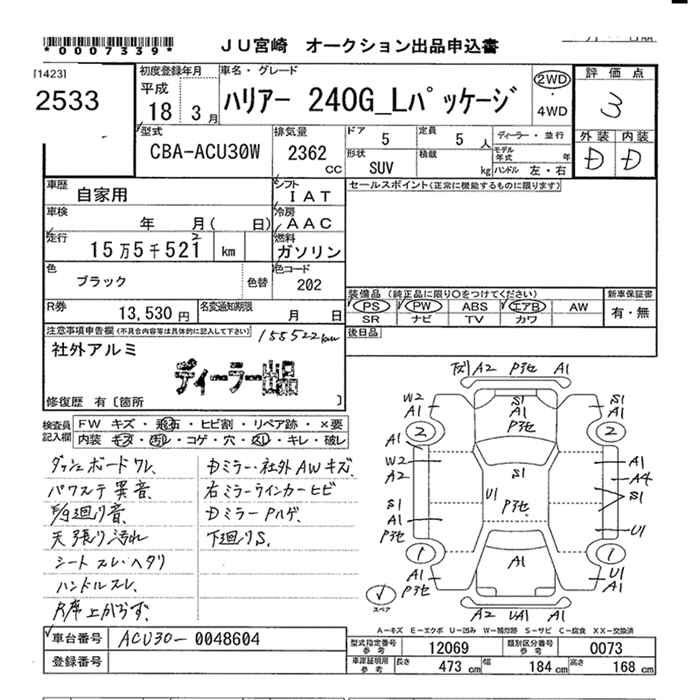 *0007339* JU宮崎 オークション出品申込書
[1423]
2533
初度登録年月 平成 18年 3月
車名・グレード ハリアー 240G_Lパッケージ
2WD ・ 4WD
評価点 3
外装 D 内装 D
型式 CBA-ACU30W
排気量 2362 CC
ドア 5 定員 5 人
形状 SUV 積載 kg
ディーラー・並行
モデル年式 年
ハンドル 左・右
車歴 自家用
シフト IAT
セールスポイント(正常に機能するものに限ります)
車検 年 月( 日)
冷房 AAC
走行 15万5千521 km
2
燃料 ガソリン
色 ブラック 色替
色コード 202
装備品 (純正品に限り○をつけてください)
PS PW ABS エアB AW
SR ナビ TV カワ
新車保証書 有・無
R券 13,530 円
名変通知期限 月 日
後日品
注意事項申告欄(不具合内容等は具体的に記入して下さい) 155522km
社外アルミ
ディーラー出品
修復歴 有〔箇所 〕
検査員記入欄
FW キズ・飛石・ヒビ割・リペア跡・×要
内装 キズ・汚レ・コゲ・穴・スレ・キレ・破レ
ダッシュボードワレ
パワステ異音
天張り汚れ
シート スレ・ヘタリ
ハンドルスレ
Dミラー・社外AWキズ
右ミラーウインカーヒビ
Dミラー Pハゲ
下廻りS
A2 Pヲ他 A1
W2 S1 S1
A1 A1 A1
2 Pヲ他 2
A1
W2 S1 A1
A2 A4
S1 U1 S1
A1 Pヲ他 U1
Pヲ他
1 1
A1 A1 U1
A2 A1
スペア
A2 UA1 A1
A-キズ E-エクボ U-凹み W-補修跡 S-サビ C-腐食 XX-交換済
車台番号 ACU30-0048604
登録番号
型式指定番号 参考 12069 類別区分番号 参考 0073
車庫証明用 参考 長さ 473 cm 幅 184 cm 高さ 168 cm